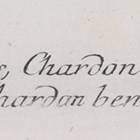 Chardon
hardon ben